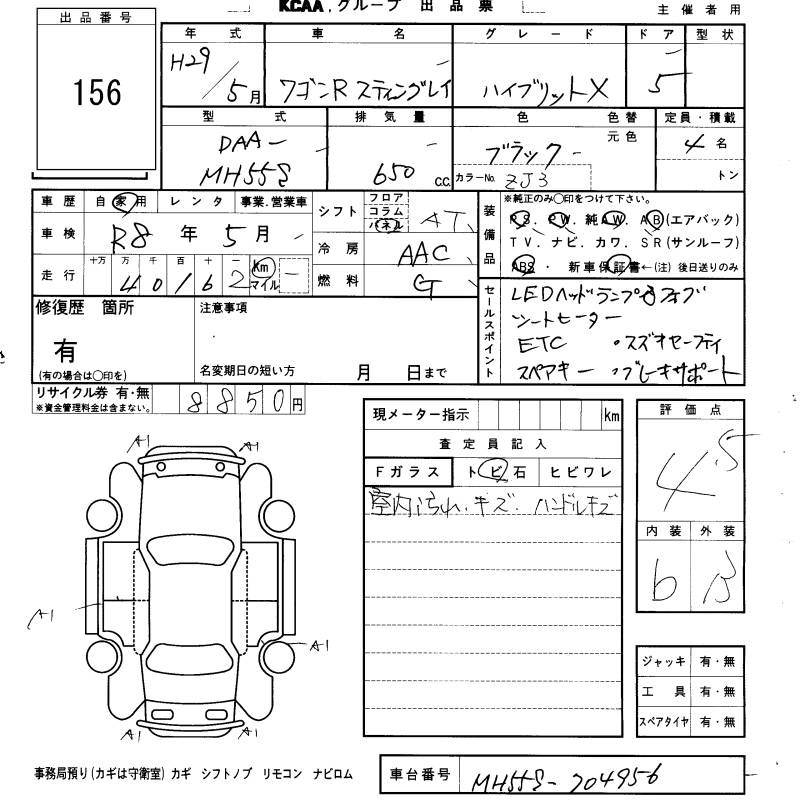 KCAA.グループ 出品票 主催者用
出品番号
156
年式 車名 グレード ドア 型状
H29/5月 ワゴンR スティングレイ ハイブリットX 5
型式 排気量 色 色替 定員・積載
DAA- MH55S 650 C.C. ブラック 元色 4名
カラーNo. ZJ3 トン
車歴 自家用 レンタ 事業.営業車
車検 R8年5月
走行 十万 万 千 百 十 km マイル
4 0 1 6 2
シフト フロア コラム パネル AT
冷房 AAC
燃料 G
装備品 ※純正のみ○印をつけて下さい。
PS. PW. 純AW. AB(エアバック)
TV. ナビ. カワ. SR(サンルーフ)
ABS・ 新車保証書←(注) 後日送りのみ
修復歴 箇所
有
(有の場合は○印を)
注意事項
名変期日の短い方 月 日まで
セールスポイント
LEDヘッドランプ フォグ
シートヒーター
ETC ・スズキセーフティ
スペアキー ・ブレーキサポート
リサイクル券 有・無
※資金管理料金は含まない。
8850円
現メーター指示 km
査定員記入
Fガラス トビ石 ヒビワレ
室内汚れ.キズ. ハンドルキズ
評価点
4.5
内装 外装
b B
A1 A1
A1 A1
A1 A1
ジャッキ 有・無
工具 有・無
スペアタイヤ 有・無
事務局預り(カギは守衛室) カギ シフトノブ リモコン ナビロム
車台番号 MH55S-704956